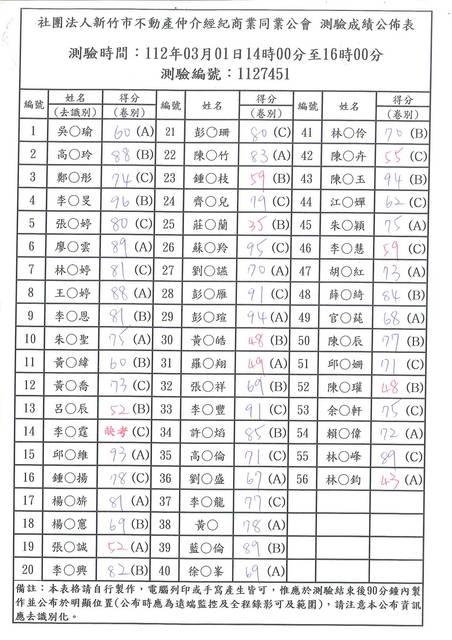 社團法人新竹市不動產仲介經紀商業同業公會 測驗成績公佈表
測驗時間：112年03月01日14時00分至16時00分
測驗編號：1127451
編號 姓名(去識別) 得分(卷別) 編號 姓名(去識別) 得分(卷別) 編號 姓名(去識別) 得分(卷別)
1 吳○瑜 60 (A) 21 彭○珊 80 (C) 41 林○伶 70 (B)
2 高○玲 88 (B) 22 陳○竹 83 (A) 42 陳○卉 55 (C)
3 鄭○彤 74 (C) 23 鍾○枝 59 (B) 43 陳○玉 94 (B)
4 李○旻 96 (B) 24 齊○兒 79 (C) 44 江○嬋 62 (C)
5 張○婷 80 (C) 25 莊○蘭 35 (B) 45 朱○穎 75 (A)
6 廖○雲 89 (A) 26 蘇○羚 95 (C) 46 李○慧 59 (C)
7 林○婷 81 (C) 27 劉○讌 70 (A) 47 胡○紅 73 (A)
8 王○婷 88 (A) 28 彭○雁 91 (C) 48 薛○綺 84 (B)
9 李○恩 81 (B) 29 彭○瑄 94 (A) 49 官○ 68 (A)
10 朱○聖 75 (A) 30 黃○皓 48 (B) 50 陳○辰 77 (B)
11 黃○緯 60 (B) 31 羅○翔 49 (A) 51 邱○姍 71 (C)
12 黃○喬 73 (C) 32 張○祥 69 (B) 52 陳○瓘 48 (B)
13 呂○辰 52 (B) 33 李○豐 91 (C) 53 余○軒 75 (C)
14 李○霆 缺考 (C) 34 許○焰 85 (B) 54 賴○偉 72 (A)
15 邱○維 93 (A) 35 高○倫 71 (C) 55 林○峰 89 (C)
16 鍾○揚 78 (C) 36 劉○盛 67 (A) 56 林○鈞 43 (A)
17 楊○旂 81 (A) 37 李○龍 77 (C)
18 楊○憲 69 (B) 38 黃○ 78 (A)
19 張○誠 52 (A) 39 藍○倫 89 (B)
20 李○興 82 (B) 40 徐○峯 69 (A)
備註：本表格請自行製作，電腦列印或手寫產生皆可，惟應於測驗結束後90分鐘內製
作並公布於明顯位置(公布時應為遠端監控及全程錄影可及範圍)，請注意本公布資訊
應去識別化。